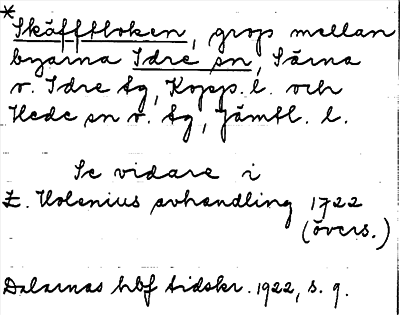 *
Skäfftloken, grop mellan
byarna Idre sn, Särna
o. Idre tg, Kopp. l. och
Hede sn o. tg, Jämtl. l.
Se vidare i
E. Holenius avhandling 1722
(övers.)
Dalarnas hbf tidskr. 1922, s. 9.